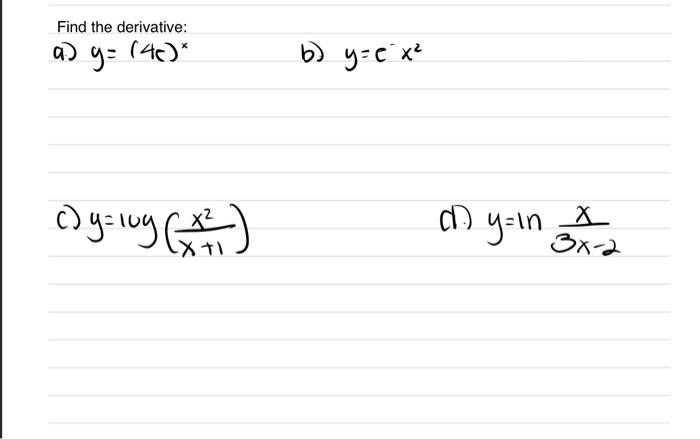 Find the derivative:
a) y= (4e)ˣ b) y=e⁻x²
c) y=log(x²/x+1) d) y=ln x/3x-2